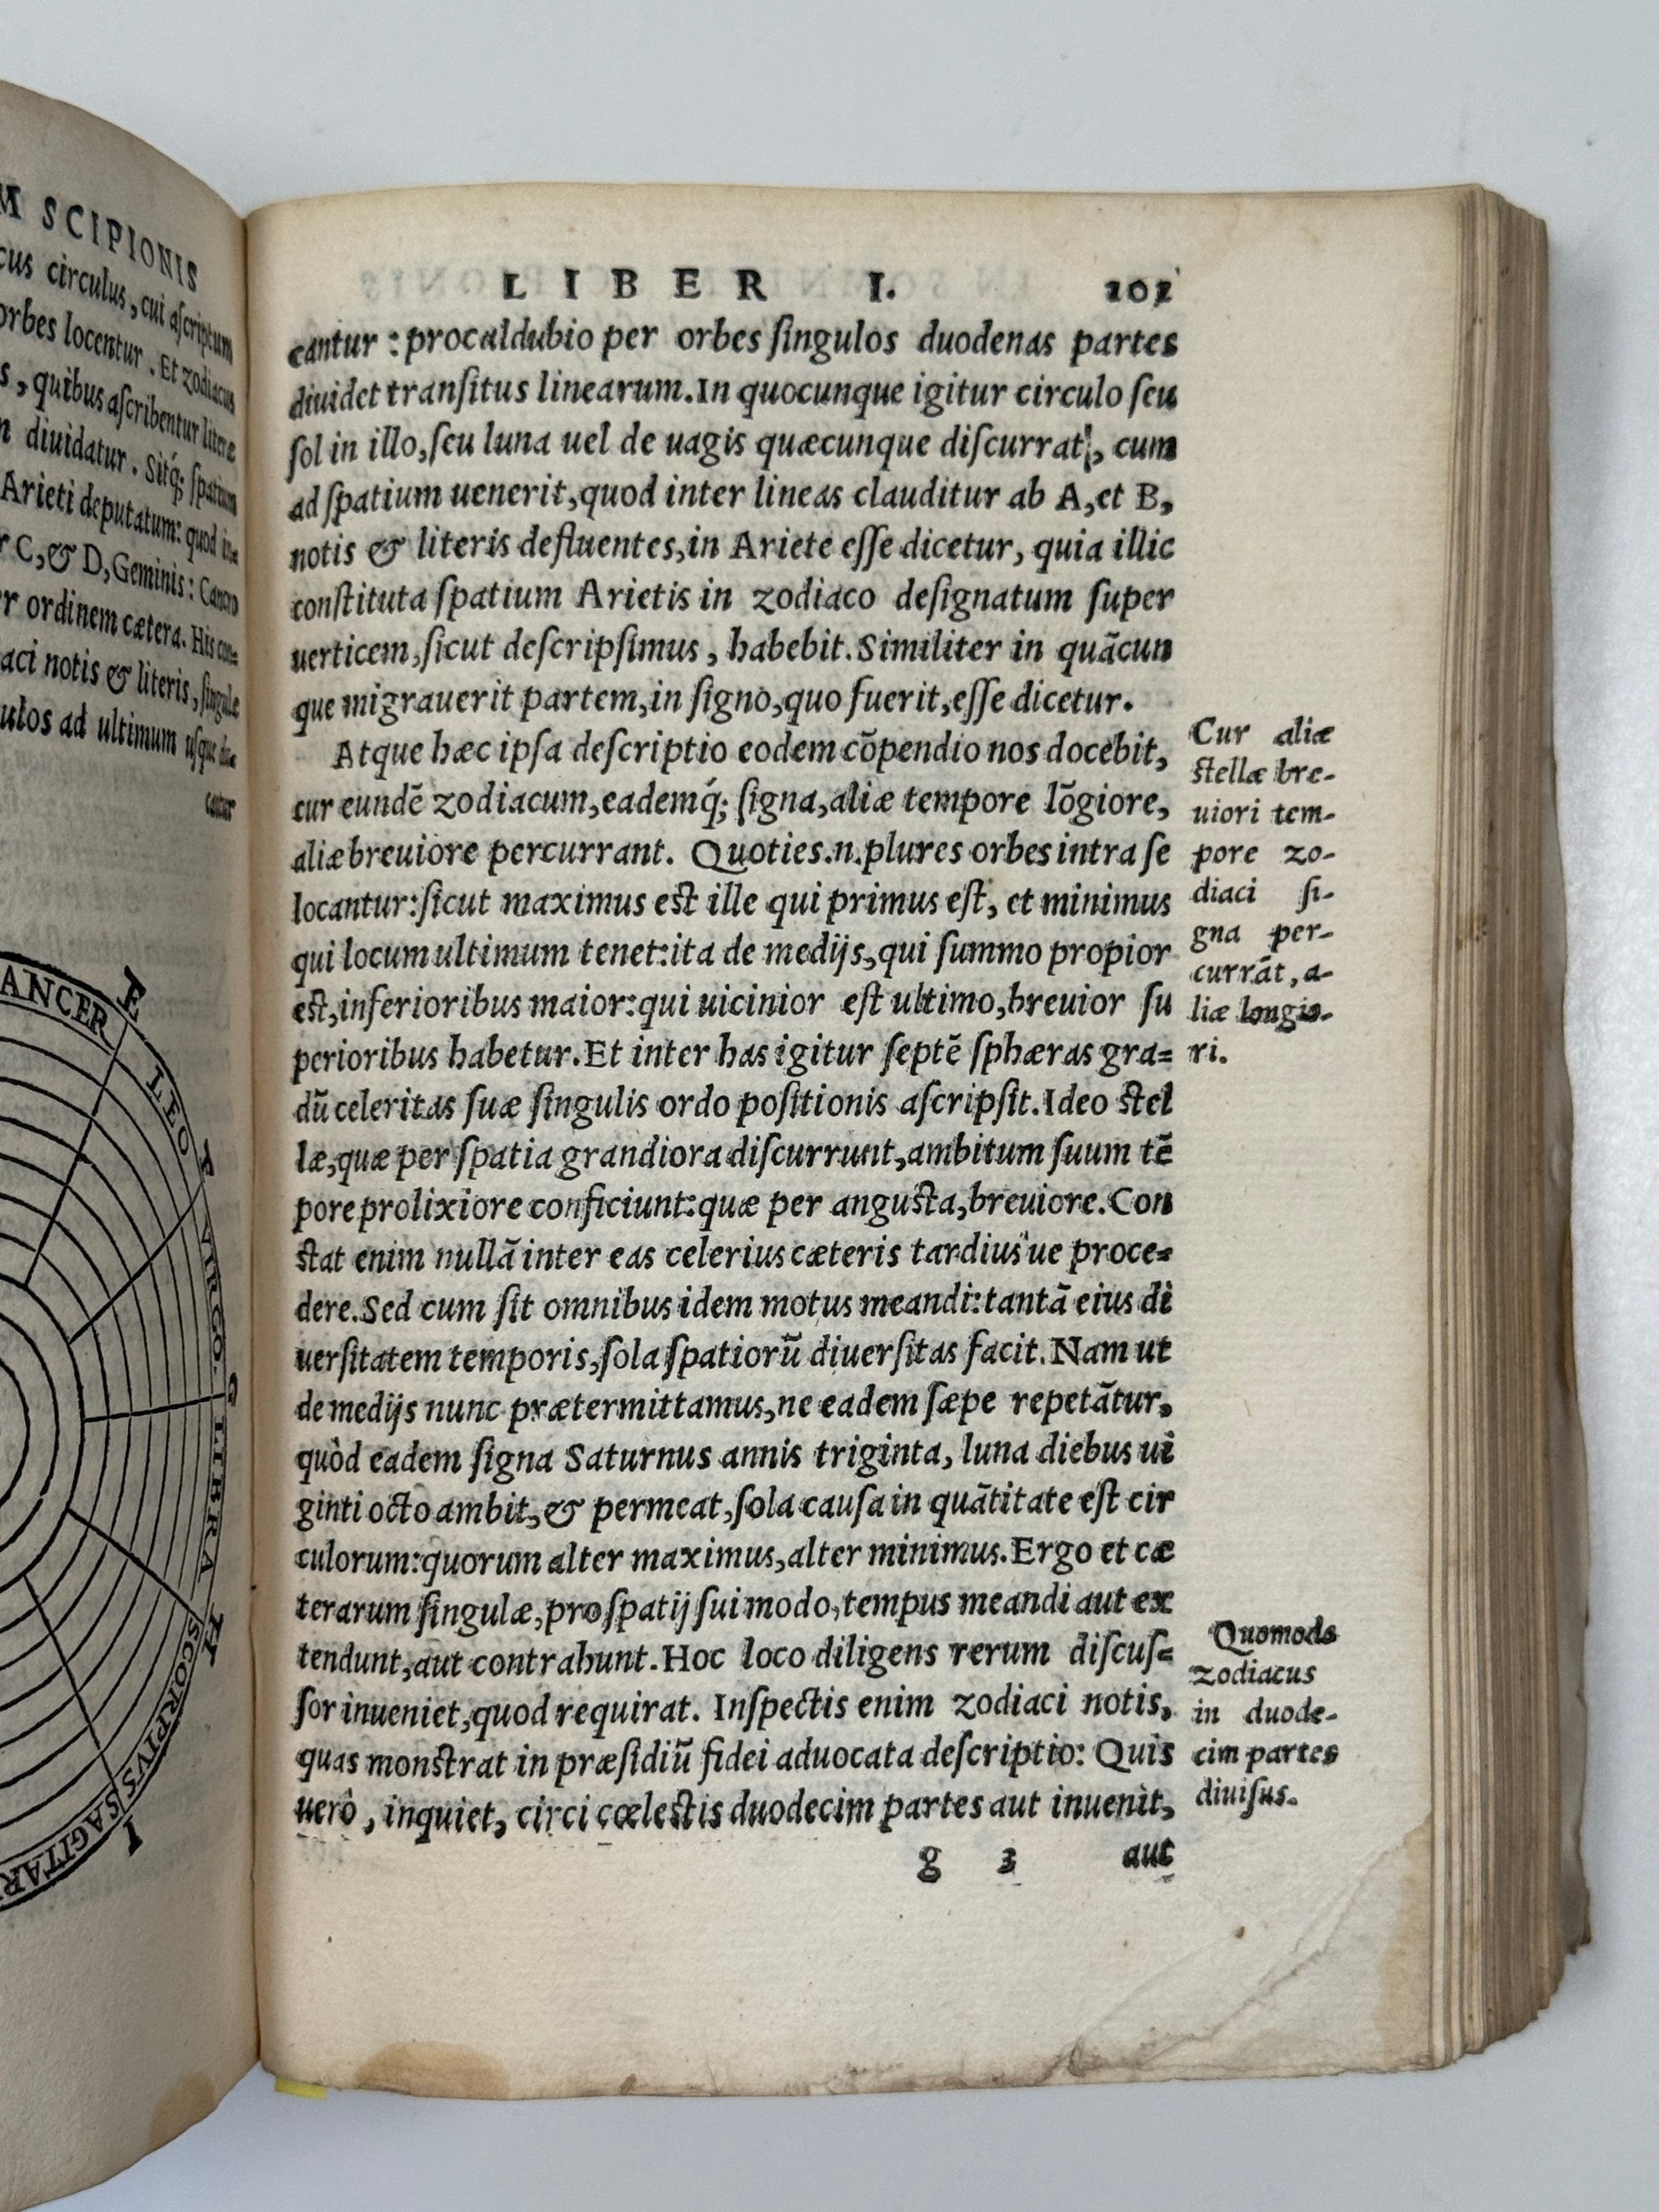 M SCIPIONIS
cus circulus, cui aſcriptum
orbes locentur. Et zodiacus
s, quibus aſcribentur literæ
n diuidatur. Sitq́; ſpatium
Arieti deputatum: quod in=
r C, & D, Geminis: Cancro
r ordinem cætera. His con=
aci notis & literis, ſingulæ
ulos ad ultimum uſque di=
cantur
ANCER
E
LEO
F
VIRGO.
G
LIBRA
H
SCORPIVS
I
SAGITAR
LIBER I. 101
cantur : proculdubio per orbes ſingulos duodenas partes
diuidet tranſitus linearum. In quocunque igitur circulo ſeu
ſol in illo, ſeu luna uel de uagis quæcunque diſcurrat, cum
ad ſpatium uenerit, quod inter lineas clauditur ab A, et B,
notis & literis defluentes, in Ariete eſſe dicetur, quia illic
conſtituta ſpatium Arietis in zodiaco deſignatum ſuper
uerticem, ſicut deſcripſimus, habebit. Similiter in quãcun
que migrauerit partem, in ſigno, quo fuerit, eſſe dicetur.
Atque hæc ipſa deſcriptio eodem cõpendio nos docebit,
cur eundẽ zodiacum, eademq́; ſigna, aliæ tempore lõgiore,
aliæ breuiore percurrant. Quoties.n.plures orbes intra ſe
locantur: ſicut maximus eſt ille qui primus eſt, et minimus
qui locum ultimum tenet: ita de medijs, qui ſummo propior
eſt, inferioribus maior: qui uicinior eſt ultimo, breuior ſu
perioribus habetur. Et inter has igitur ſeptẽ ſphæras gra=
dũ celeritas ſuæ ſingulis ordo poſitionis aſcripſit. Ideo ſtel
læ, quæ per ſpatia grandiora diſcurrunt, ambitum ſuum tẽ
pore prolixiore conficiunt: quæ per anguſta, breuiore. Con
ſtat enim nullã inter eas celerius cæteris tardius'ue proce=
dere. Sed cum ſit omnibus idem motus meandi: tantã eius di
uerſitatem temporis, ſola ſpatiorũ diuerſitas facit. Nam ut
de medijs nunc prætermittamus, ne eadem ſæpe repetãtur,
quòd eadem ſigna Saturnus annis triginta, luna diebus ui
ginti octo ambit, & permeat, ſola cauſa in quãtitate eſt cir
culorum: quorum alter maximus, alter minimus. Ergo et cæ
terarum ſingulæ, pro ſpatij ſui modo, tempus meandi aut ex
tendunt, aut contrahunt. Hoc loco diligens rerum diſcuſ=
ſor inueniet, quod requirat. Inſpectis enim zodiaci notis,
quas monſtrat in præſidiũ fidei aduocata deſcriptio: Quis
uerò, inquiet, circi cœleſtis duodecim partes aut inuenit,
g 3 aut
Cur aliæ
ſtellæ bre-
uiori tem-
pore zo-
diaci ſi-
gna per-
currãt, a-
liæ longio-
ri.
Quomodo
zodiacus
in duode-
cim partes
diuiſus.